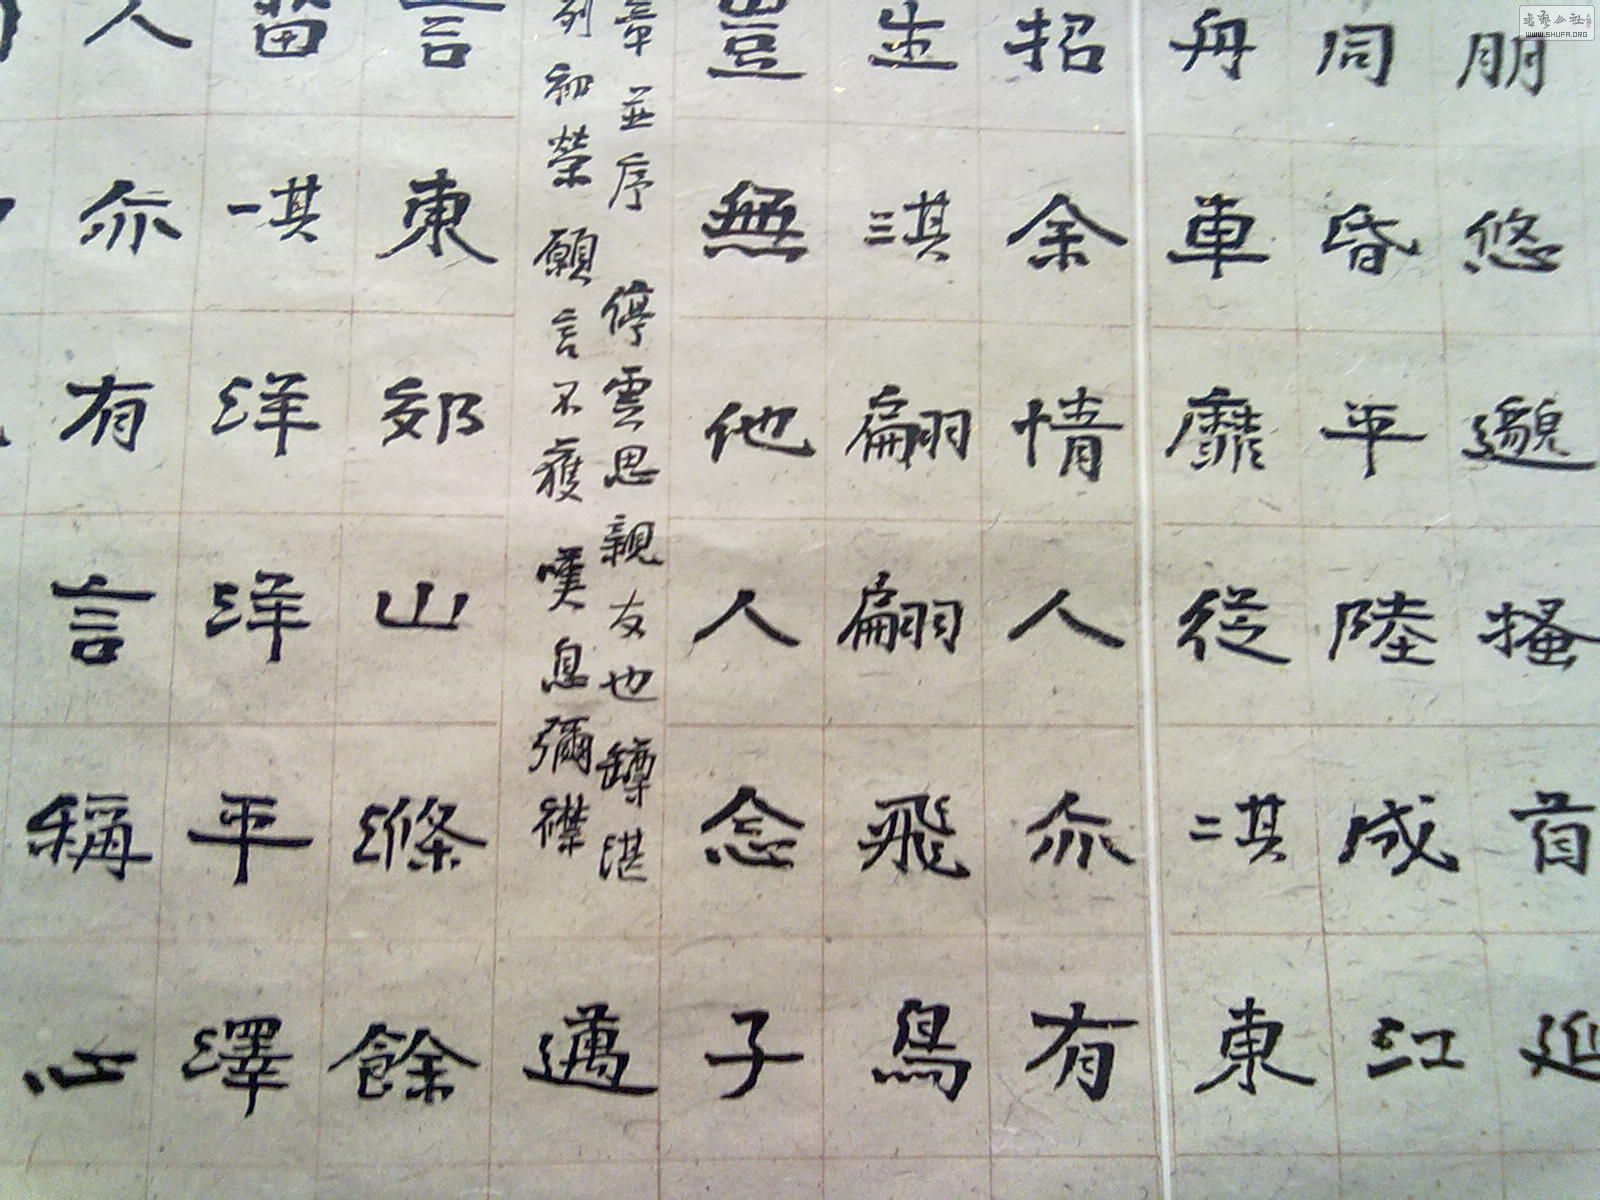 朋悠邈搔首延
同昏平陸成江
舟車靡從其二東
招余情人亦有
生其三翩翩飛鳥
豈無他人念子
章並序 停雲思親友也罇湛
列初榮願言不獲嘆息彌襟
邁
言東郊山滌餘
留其一洋洋平澤
人亦有言稱心
书艺公社
WWW.SHUFA.ORG